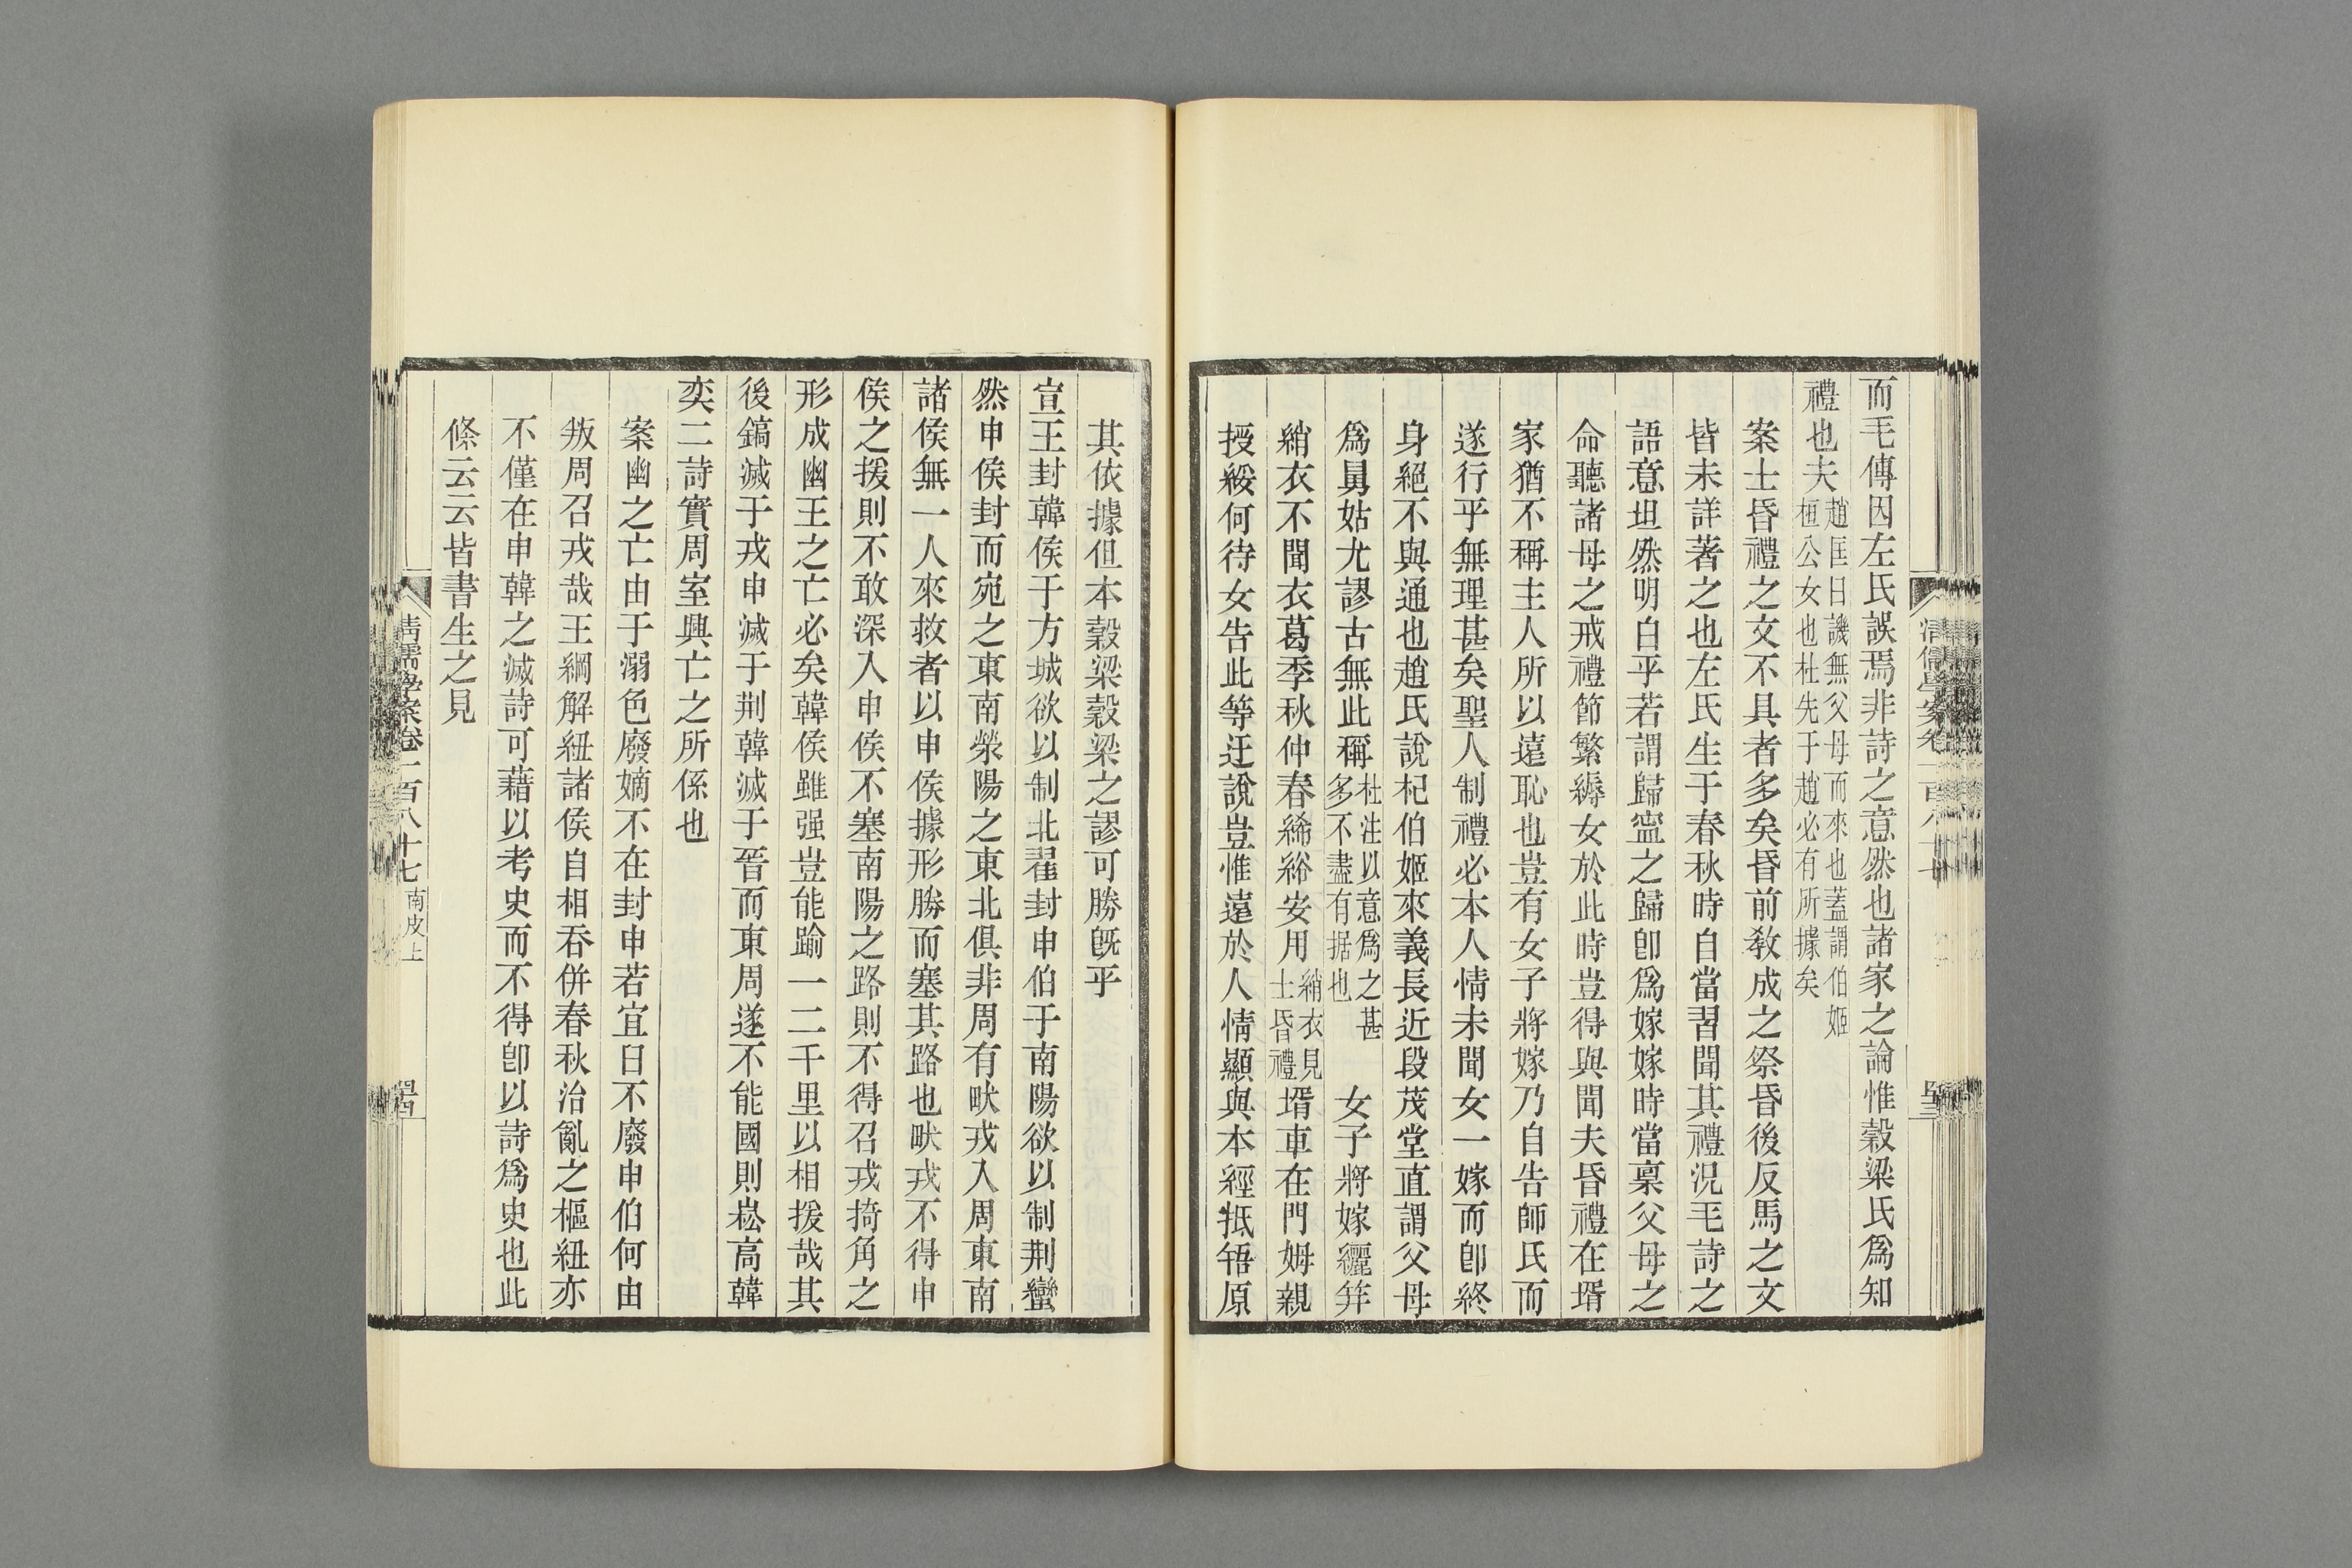 而毛傳因左氏誤焉非詩之意然也諸家之論惟穀梁氏爲知
禮也夫趙匡曰譏無父母而來也蓋謂伯姬
桓公女也杜先于趙必有所據矣
案士昏禮之文不具者多矣昏前敎成之祭昏後反馬之文
皆未詳著之也左氏生于春秋時自當習聞其禮況毛詩之
語意坦然明白乎若謂歸寍之歸卽爲嫁嫁時當稟父母之
命聽諸母之戒禮節繁縟女於此時豈得與聞夫昏禮在壻
家猶不稱主人所以遠恥也豈有女子將嫁乃自告師氏而
遂行乎無理甚矣聖人制禮必本人情未聞女一嫁而卽終
身絕不與通也趙氏說杞伯姬來義長近段茂堂直謂父母
爲舅姑尤謬古無此稱杜注以意爲之甚
多不盡有据也女子將嫁纚笄
綃衣不聞衣葛季秋仲春絺綌安用綃衣見
士昏禮壻車在門姆親
授綏何待女告此等迂說豈惟遠於人情顯與本經抵牾原
清儒學案卷一百八十七
其依據但本穀梁穀梁之謬可勝旣乎
宣王封韓侯于方城欲以制北翟封申伯于南陽欲以制荆蠻
然申侯封而宛之東南滎陽之東北俱非周有畎戎入周東南
諸侯無一人來救者以申侯據形勝而塞其路也畎戎不得申
侯之援則不敢深入申侯不塞南陽之路則不得召戎掎角之
形成幽王之亡必矣韓侯雖强豈能踰一二千里以相援哉其
後鎬滅于戎申滅于荆韓滅于晉而東周遂不能國則崧高韓
奕二詩實周室興亡之所係也
案幽之亡由于溺色廢嫡不在封申若宜臼不廢申伯何由
叛周召戎哉王綱解紐諸侯自相吞併春秋治亂之樞紐亦
不僅在申韓之滅詩可藉以考史而不得卽以詩爲史也此
條云云皆書生之見
清儒學案卷一百八十七 南皮上